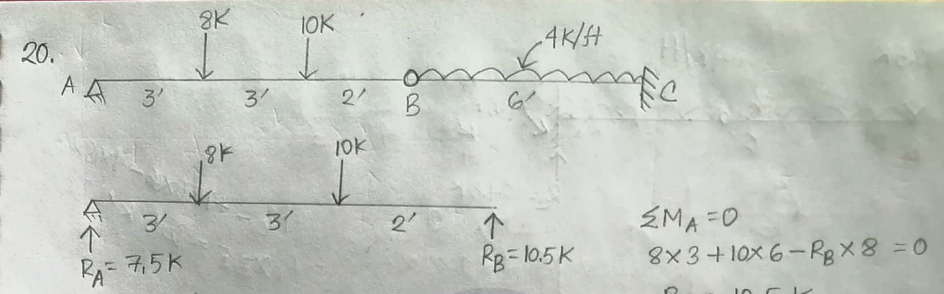 20.
8K 10K 4K/ft
A 3' 3' 2' B 6' C
8K 10K
3' 3' 2'
RA = 7.5K RB = 10.5K
ΣMA = 0
8×3+10×6−RB×8 = 0